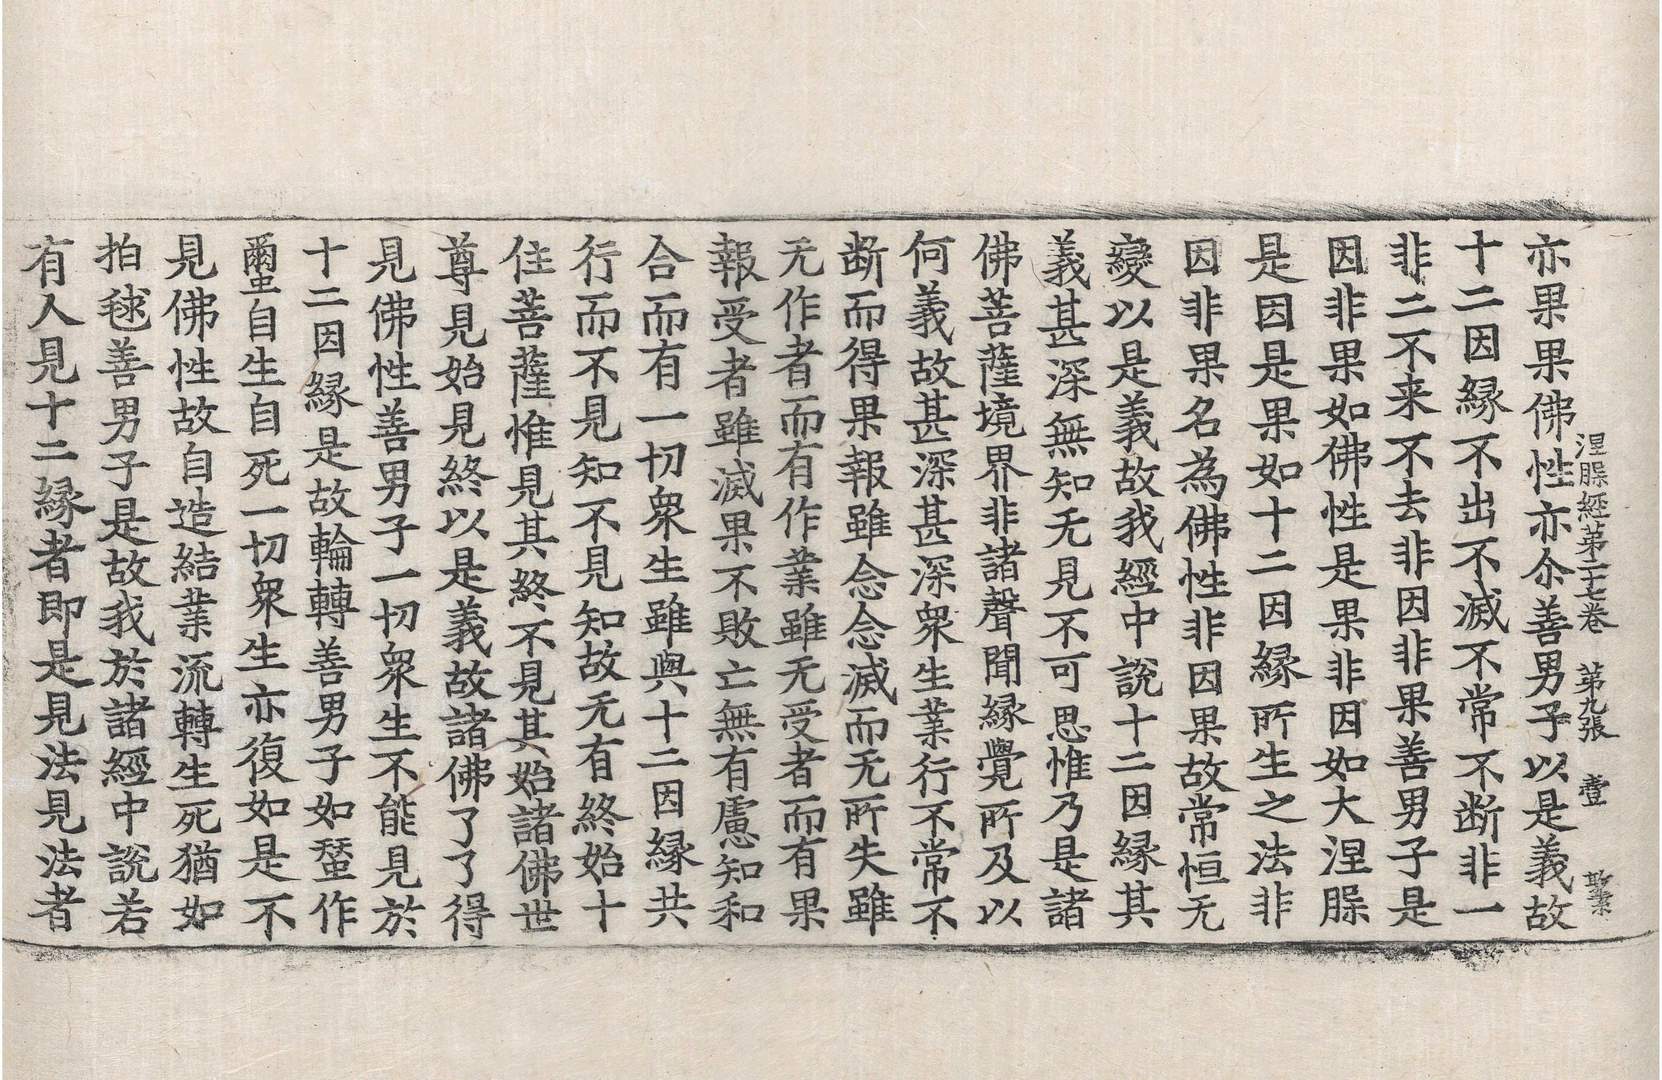 涅槃經第二十七卷 第九張 壹
亦果果佛性亦尒善男子以是義故
十二因縁不出不滅不常不断非一
非二不来不去非因非果善男子是
因非果如佛性是果非因如大涅槃
是因是果如十二因縁所生之法非
因非果名為佛性非因果故常恒无
變以是義故我經中說十二因縁其
義甚深無知无見不可思惟乃是諸
佛菩薩境界非諸聲聞縁覺所及以
何義故甚深甚深衆生業行不常不
断而得果報雖念念滅而无所失雖
无作者而有作業雖无受者而有果
報受者雖滅果不敗亡無有慮知和
合而有一切衆生雖與十二因縁共
行而不見知不見知故无有終始十
住菩薩惟見其終不見其始諸佛世
尊見始見終以是義故諸佛了了得
見佛性善男子一切衆生不能見於
十二因縁是故輪轉善男子如蝅作
𧕼自生自死一切衆生亦復如是不
見佛性故自造結業流轉生死猶如
拍毬善男子是故我於諸經中說若
有人見十二縁者即是見法見法者